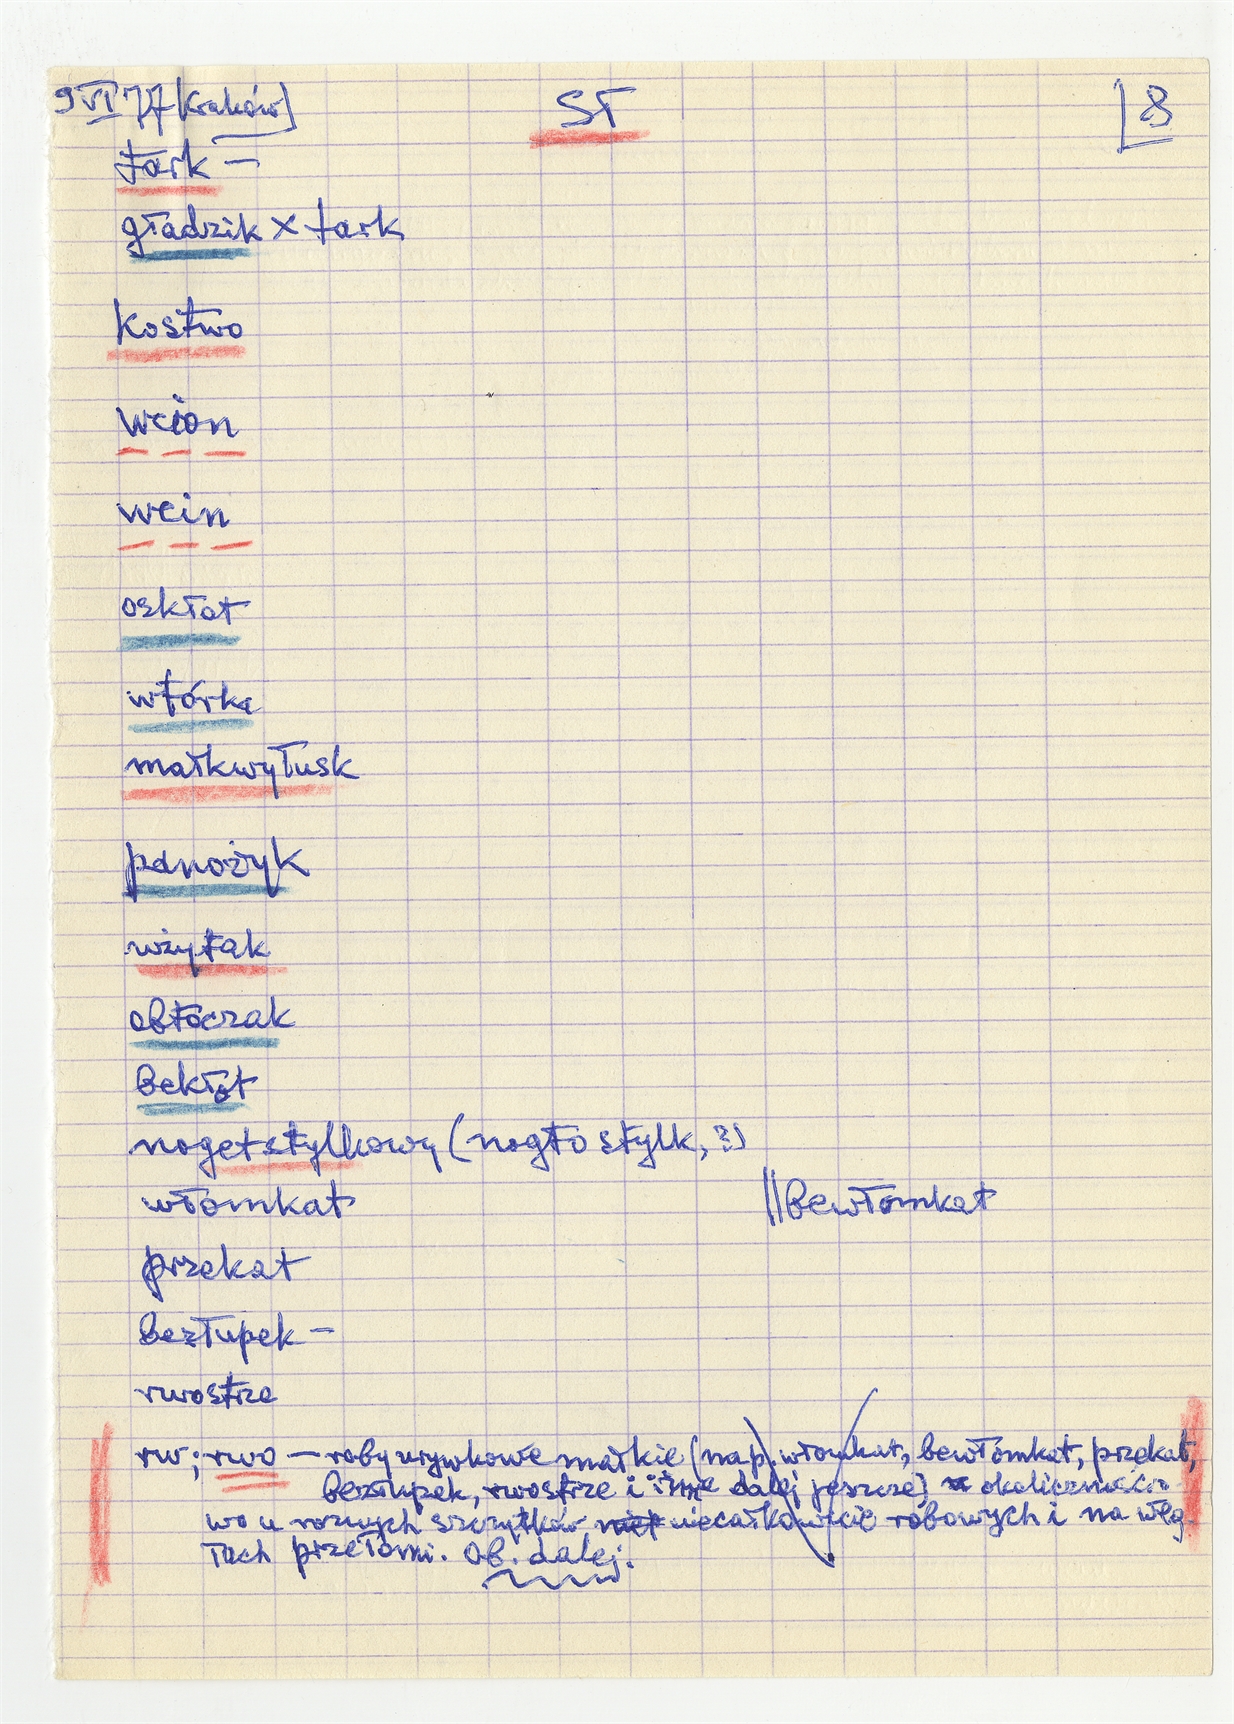 9 VI 77 [Kraków] SŁ 8
tark —
gładzik × tark
kostwo
wcion
wcin
oskłat
wtórka
małkwyłusk
panożyk
wżytak
obtóczak
bekłot
nogetstylkowy (nogło stylk, ?)
włomkat || bewłomkat
przekat
bezłupek —
rwostrze
rw; rwo — roby urywkowe małkie (nap. włomkat, bewłomkat, przekat,
bezłupek, rwostrze i inne dalej jeszcze) okolicznościo-
wo u rożnych szczytków niecałkowicie robowych i na węg-
łach przełomi. Ob. dalej.